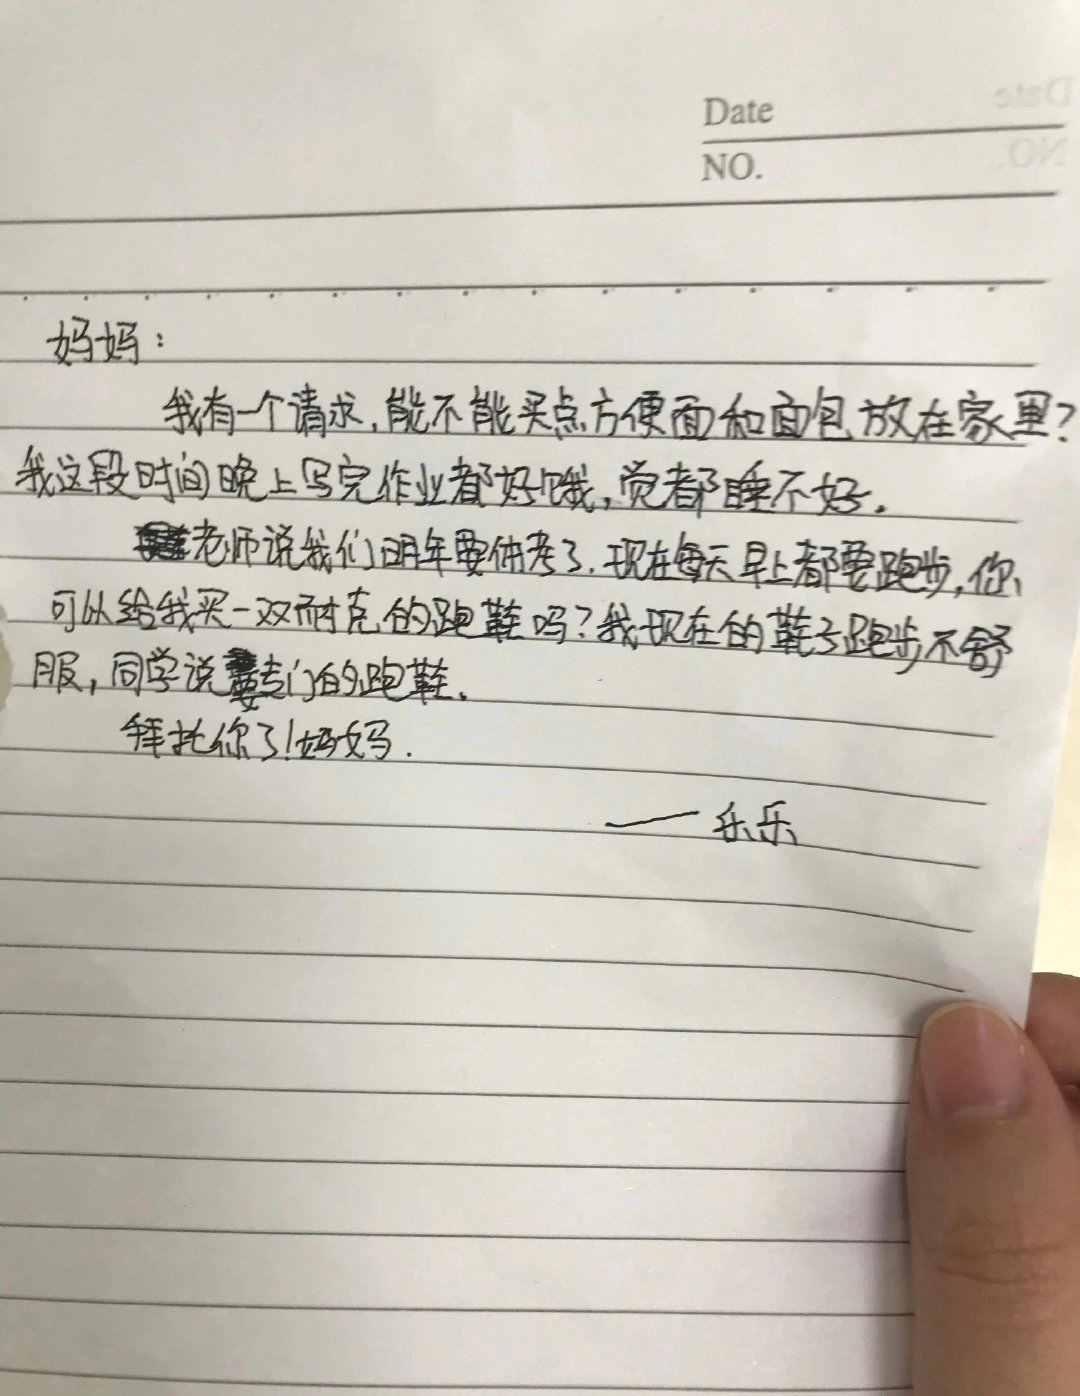 Date
NO.
妈妈：
我有一个请求,能不能买点方便面和面包放在家里?
我这段时间晚上写完作业都好饿,觉都睡不好.
老师说我们明年要体考了.现在每天早上都要跑步,你
可以给我买一双耐克的跑鞋吗?我现在的鞋子跑步不舒
服,同学说要专门的跑鞋.
拜托你了!妈妈.
——乐乐